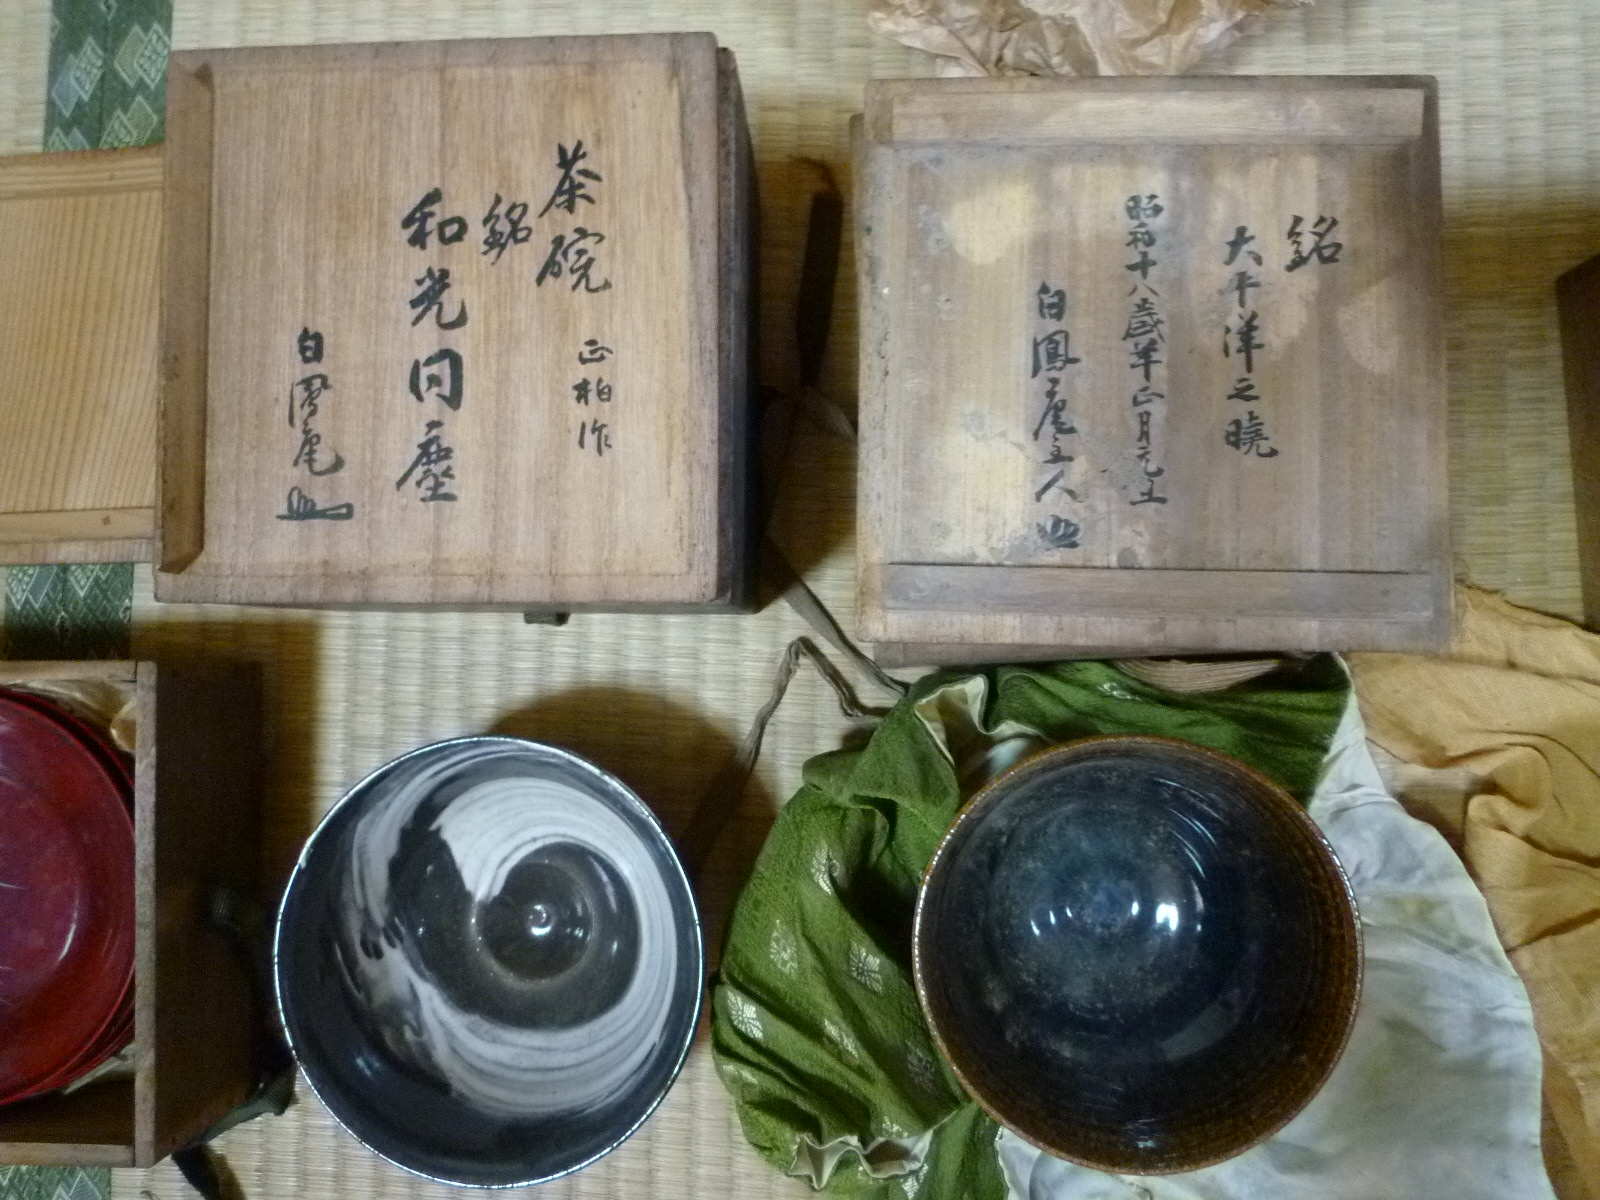 茶碗 正柏作
銘
和光同塵
白鳳庵
銘
大平洋之暁
昭和十八歳羊正月元旦
白鳳庵主人